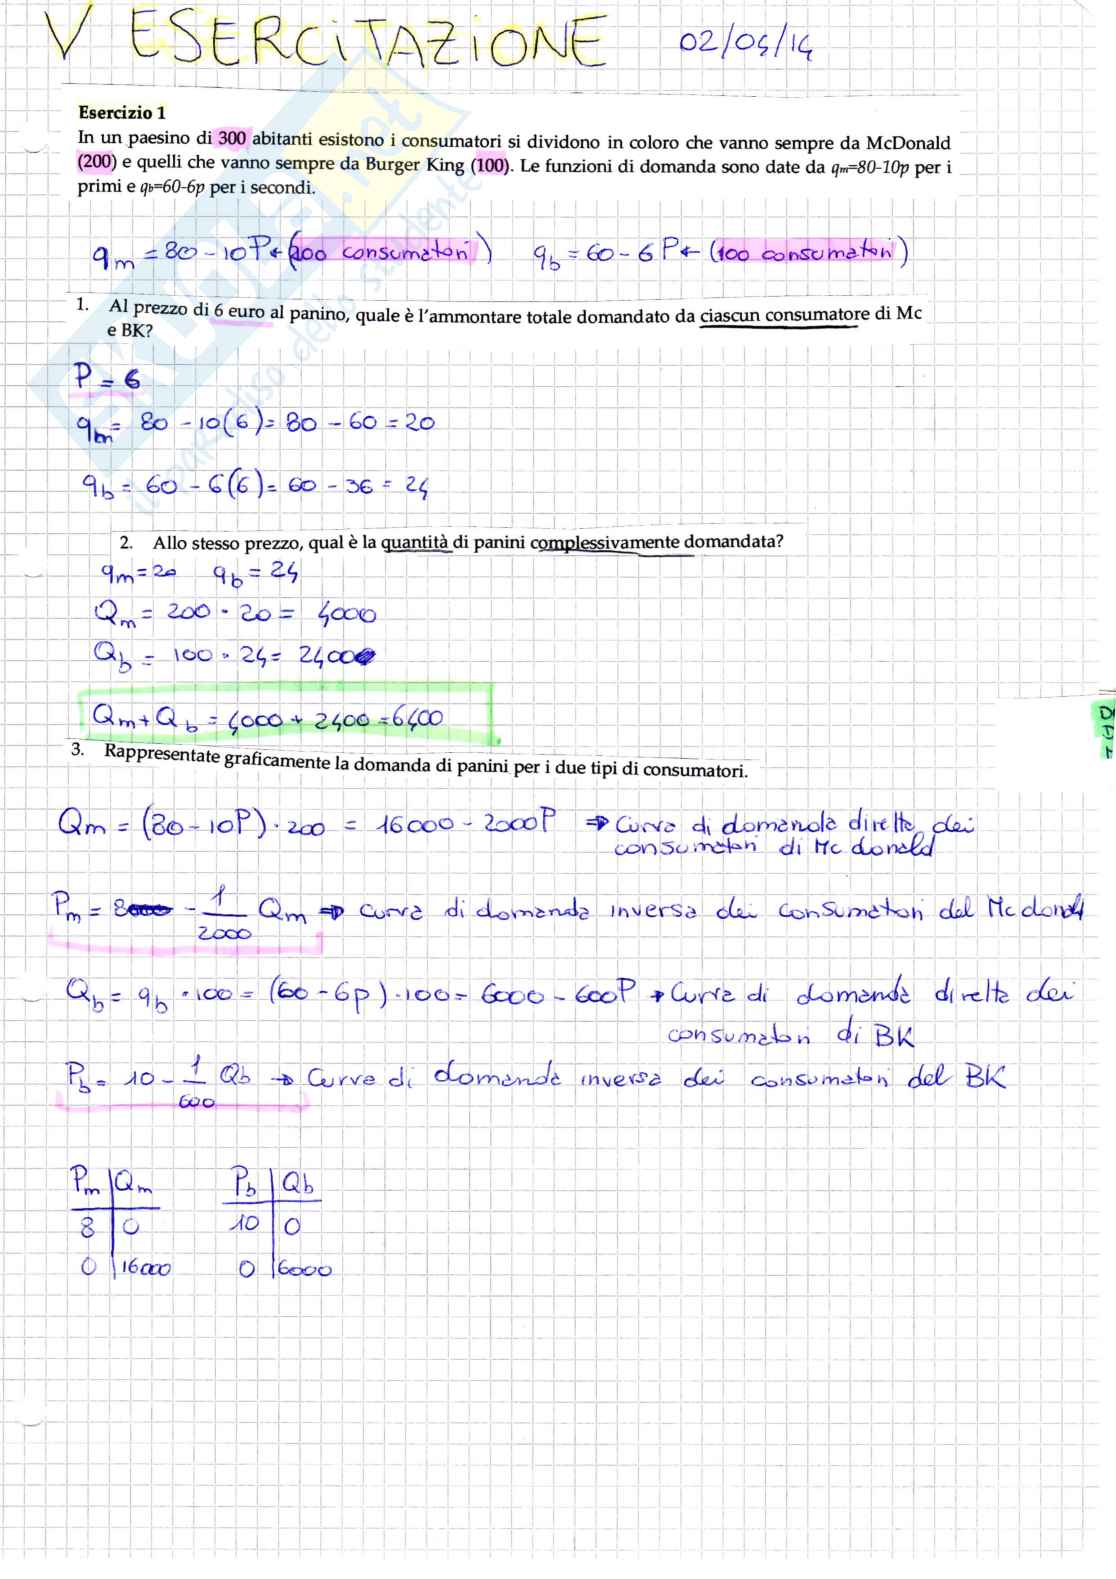 V ESERCITAZIONE 02/04/14
Esercizio 1
In un paesino di 300 abitanti esistono i consumatori si dividono in coloro che vanno sempre da McDonald
(200) e quelli che vanno sempre da Burger King (100). Le funzioni di domanda sono date da qm=80-10p per i
primi e qb=60-6p per i secondi.
qm = 80 - 10P ← (200 consumatori) qb = 60 - 6P ← (100 consumatori)
1. Al prezzo di 6 euro al panino, quale è l'ammontare totale domandato da ciascun consumatore di Mc
e BK?
P = 6
qm = 80 - 10(6) = 80 - 60 = 20
qb = 60 - 6(6) = 60 - 36 = 24
2. Allo stesso prezzo, qual è la quantità di panini complessivamente domandata?
qm = 20 qb = 24
Qm = 200 · 20 = 4000
Qb = 100 · 24 = 2400
Qm + Qb = 4000 + 2400 = 6400
3. Rappresentate graficamente la domanda di panini per i due tipi di consumatori.
Qm = (80 - 10P) · 200 = 16000 - 2000P ⇒ Curva di domanda diretta dei
consumatori di Mc donald
Pm = 8 - 1/2000 Qm ⇒ curva di domanda inversa dei consumatori del Mc donald
Qb = qb · 100 = (60 - 6p) · 100 = 6000 - 600P → Curva di domanda diretta dei
consumatori di BK
Pb = 10 - 1/600 Qb → Curva di domanda inversa dei consumatori del BK
Pm | Qm Pb | Qb
8 | 0 10 | 0
0 | 16000 0 | 6000